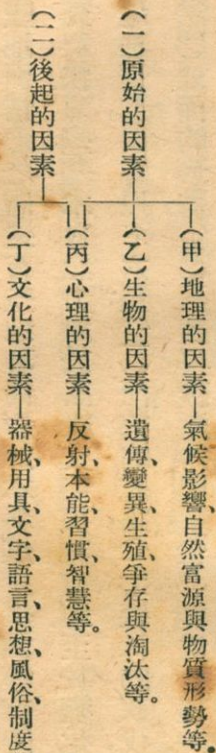 (一)原始的因素
(甲)地理的因素—氣候影響、自然富源與物質形勢等
(乙)生物的因素—遺傳、變異、生殖、爭存與淘汰等。
(二)後起的因素
(丙)心理的因素—反射本能、習慣、智慧等。
(丁)文化的因素—器械、用具、文字、語言、思想、風俗、制度